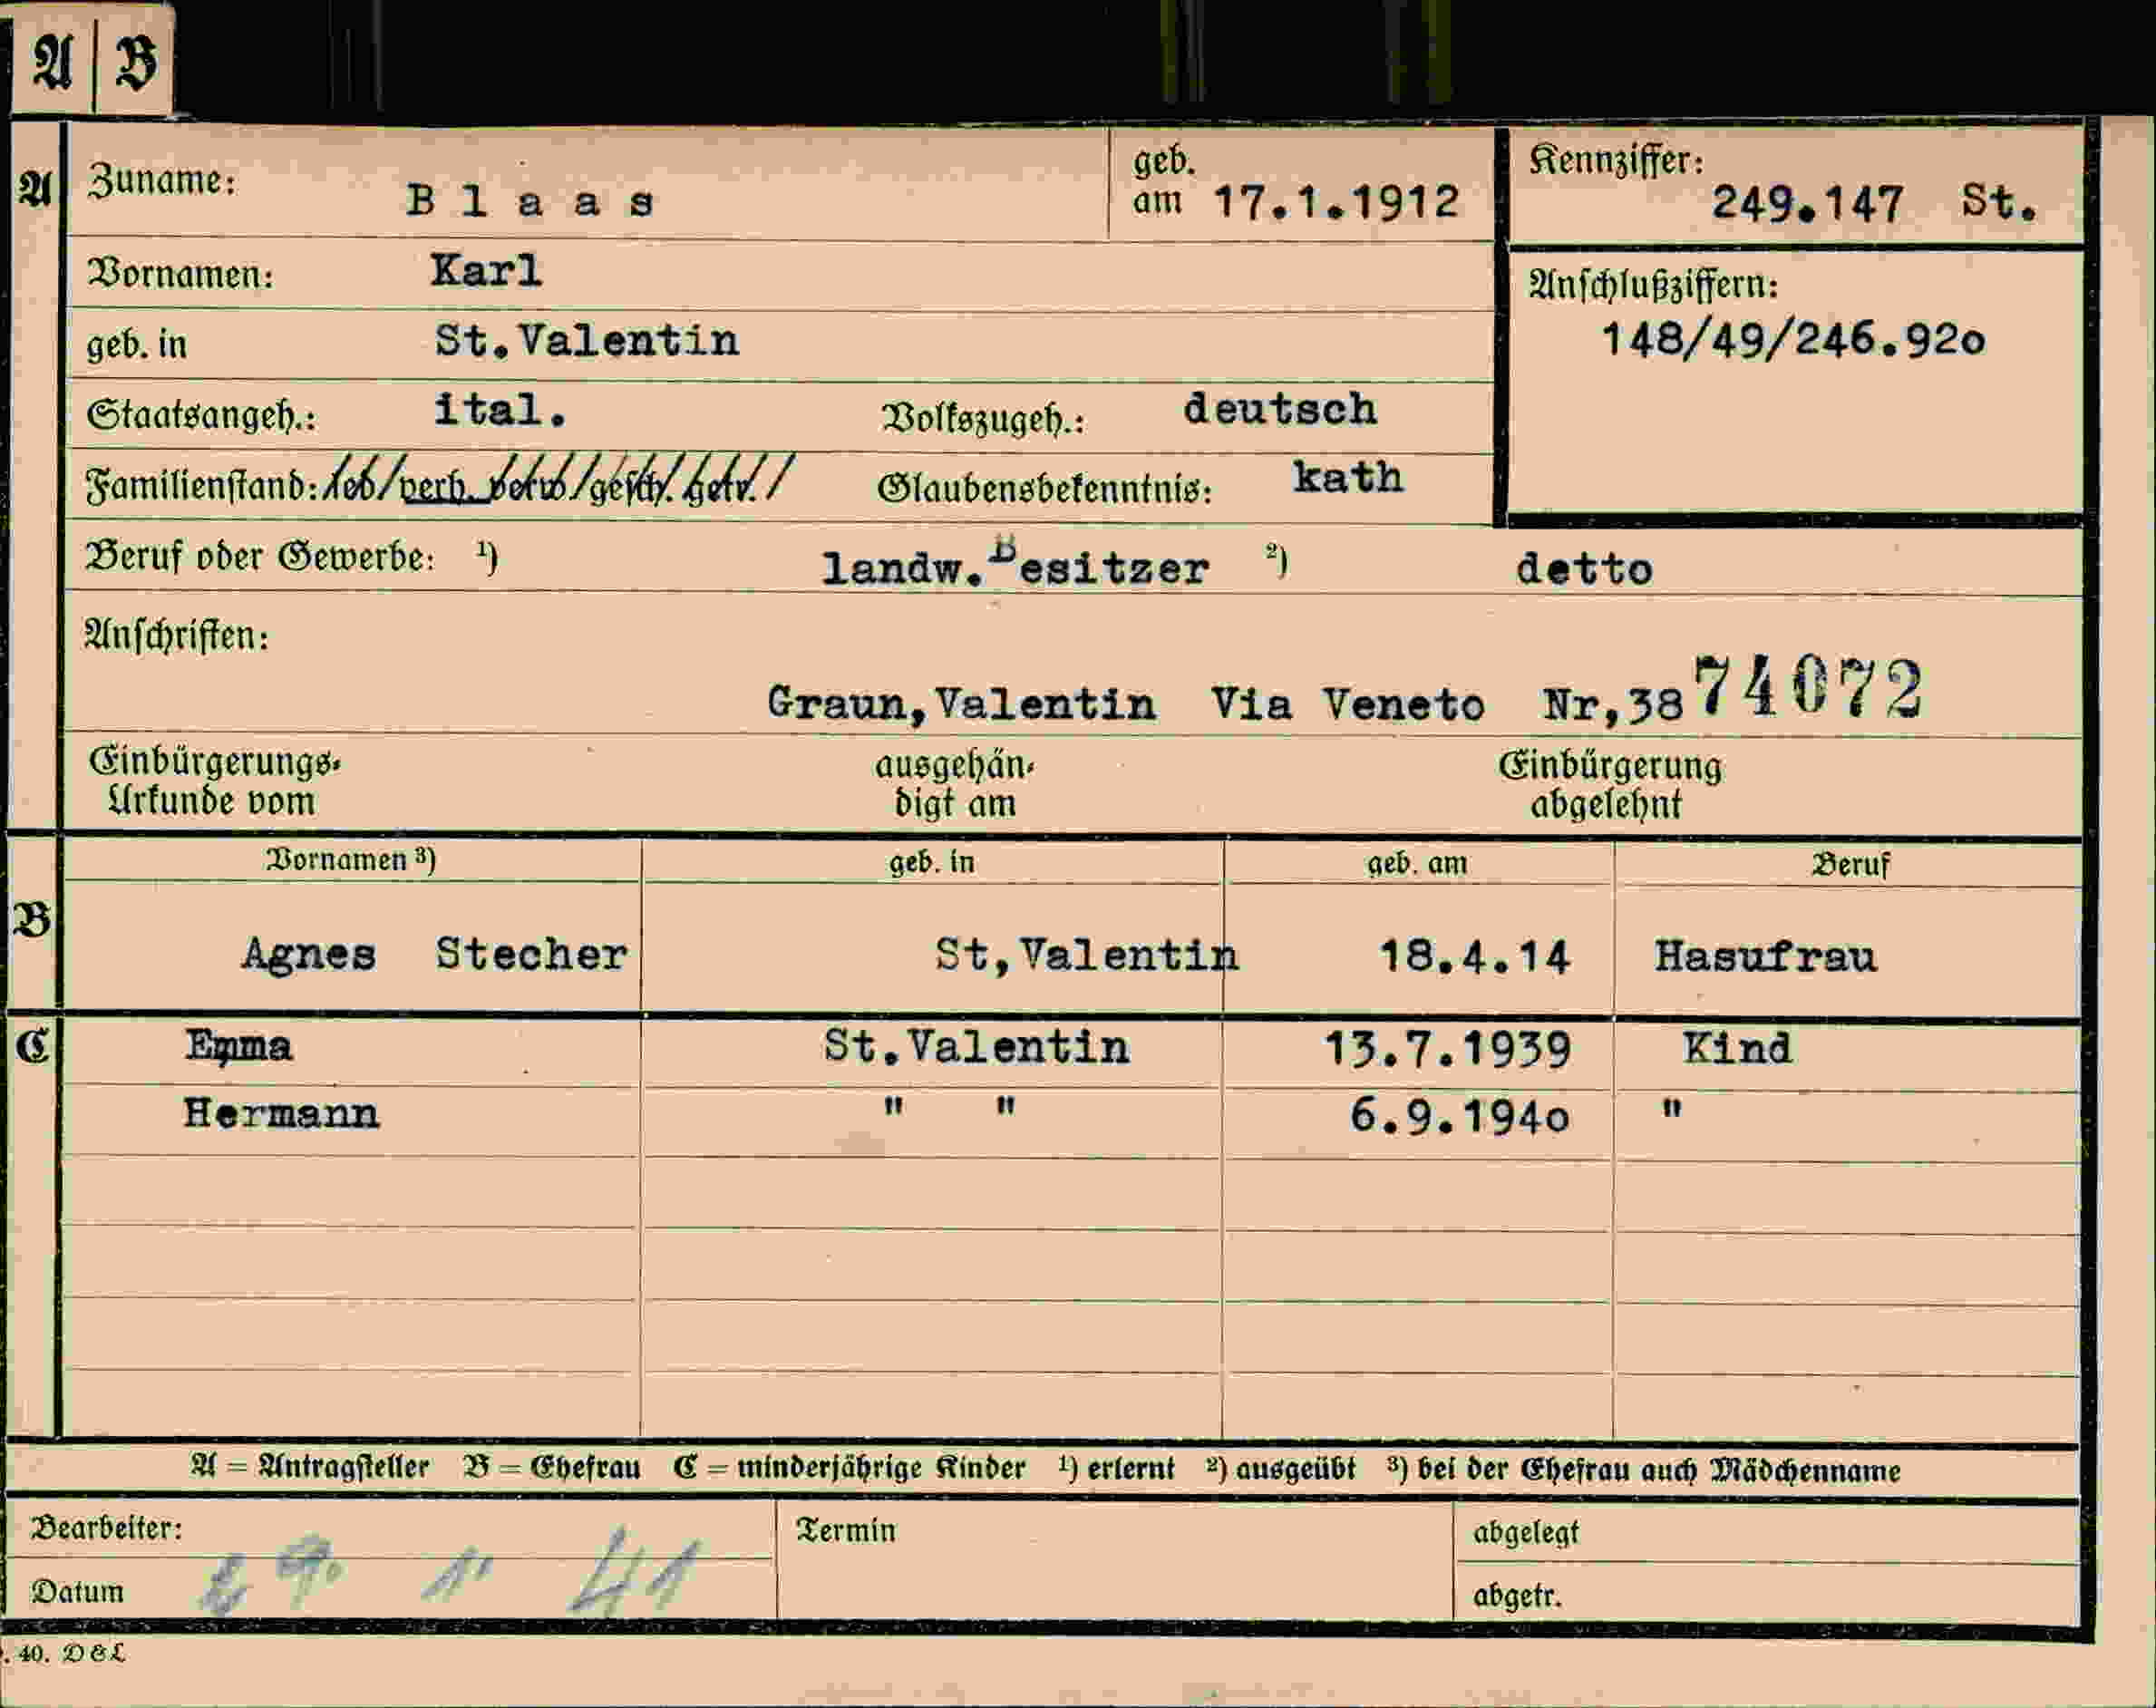 A B
A Zuname: Blaas geb. am 17.1.1912 Kennziffer: 249.147 St.
Vornamen: Karl
Anschlußziffern:
geb. in St.Valentin 148/49/246.92o
Staatsangeh.: ital. Volkszugeh.: deutsch
Familienstand: led/verh. verw/gesch. getr./ Glaubensbekenntnis: kath
Beruf oder Gewerbe: ¹) landw.Besitzer ²) detto
Anschriften:
Graun,Valentin Via Veneto Nr,38 74072
Einbürgerungs- ausgehän- Einbürgerung
Urkunde vom digt am abgelehnt
Vornamen ³) geb. in geb. am Beruf
B
Agnes Stecher St,Valentin 18.4.14 Hasufrau
C Emma St.Valentin 13.7.1939 Kind
Hermann " " 6.9.194o "
A = Antragsteller B = Ehefrau C = minderjährige Kinder ¹) erlernt ²) ausgeübt ³) bei der Ehefrau auch Mädchenname
Bearbeiter: Termin abgelegt
Datum 29. 1. 41 abgetr.
. 40. D & L